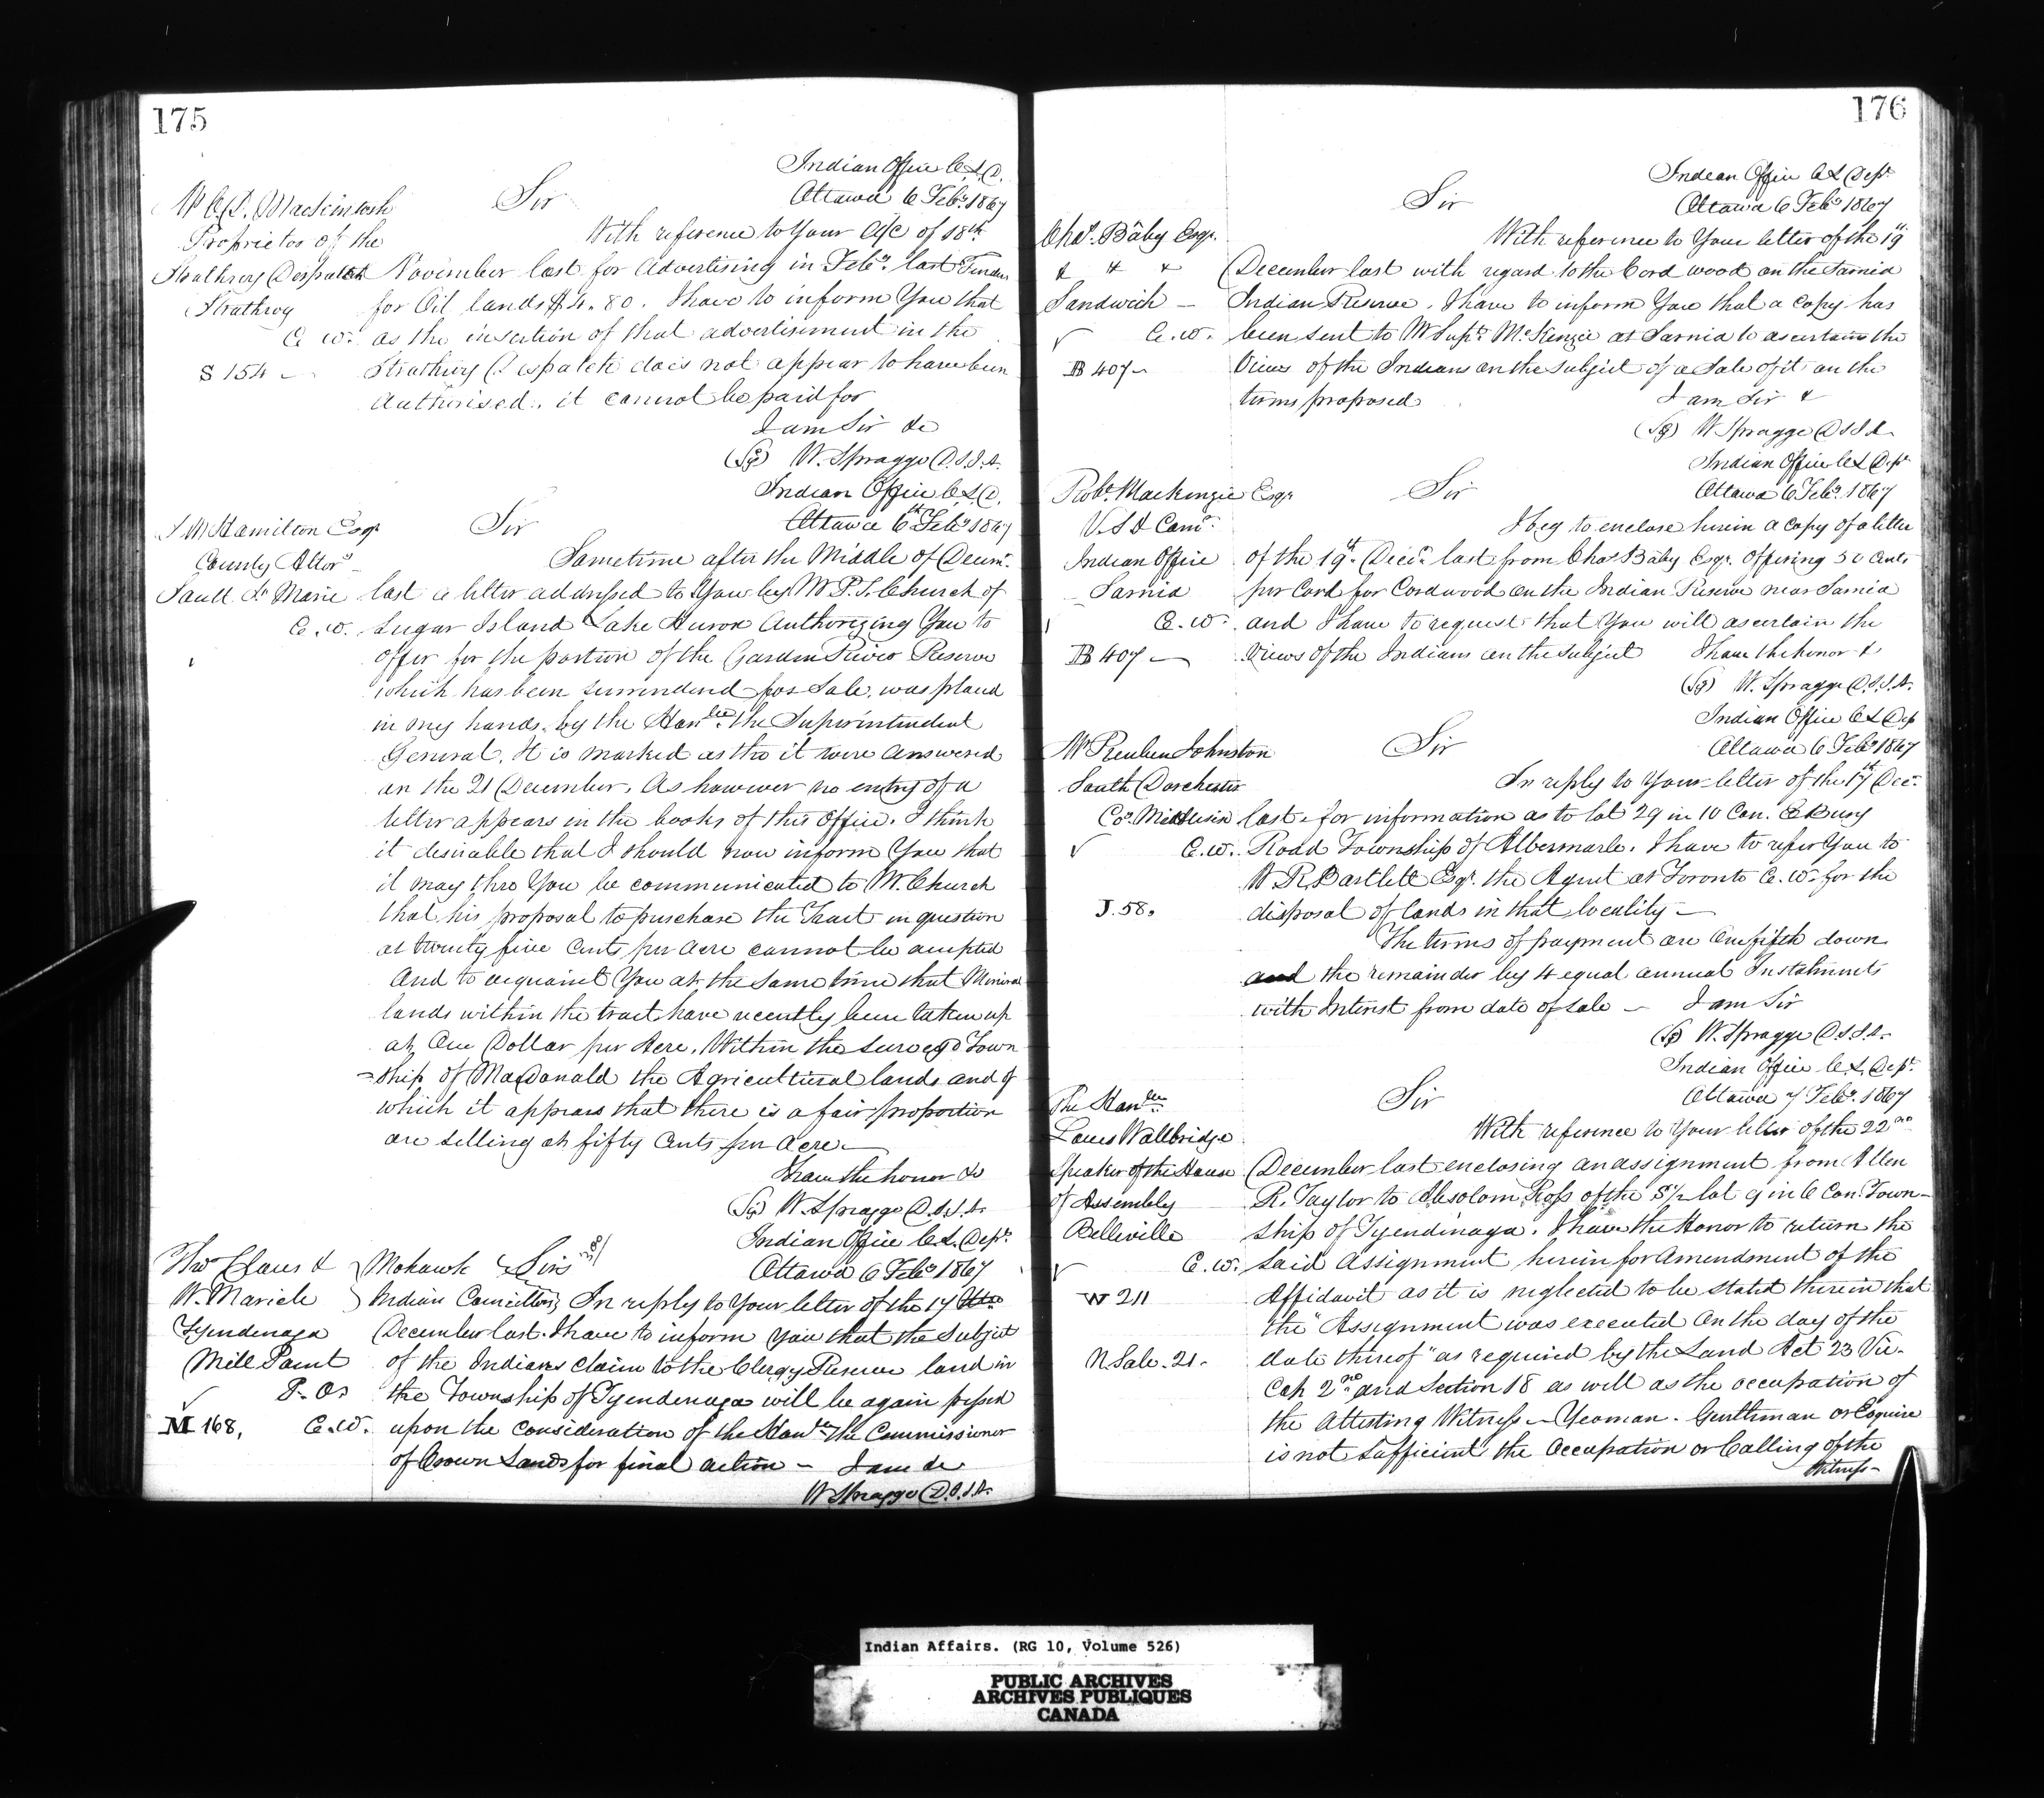 175
Indian Office C.L.D.
Ottawa 6 Feby. 1867
Mr C.D. MacKintosh
Proprietor of the
Strathroy Despatch
Strathroy
C. W.
S 154
Sir
With reference to Your A/c of 18th
November last for Advertising in Feby. last
for Oil lands $4.80. I have to inform You that
as the insertion of that advertisement in the
Strathroy Despatch does not appear to have been
Authorised, it cannot be paid for
I am Sir &c
(Sg) W. Spragge D.S.I.A.
Indian Office C.L.D.
Ottawa 6th Feby 1867
Hamilton Esqr
County Attory
Sault St Marie
C. W.
Sir
Sometime after the Middle of Decemr.
last a letter addressed to You by Mr P.S. Church of
Sugar Island Lake Huron Authorizing You to
offer for the portion of the Garden River Reserve
which has been surrendered for Sale, was placed
in my hands by the Honble. the Superintendent
General. It is marked as tho it were Answered
on the 21 December. As however no entry of a
letter appears in the books of this Office. I think
it desirable that I should now inform You that
it may thro You be communicated to Mr. Church
that his proposal to purchase the Tract in question
at twenty five Cents per Acre cannot be accepted
And to acquaint You at the same time that Mineral
lands within the tract have recently been taken up
at One Dollar per Acre. Within the surveyd Town
=ship of MacDonald the Agricultural lands and of
which it appears that there is a fair proportion
are selling at fifty Cents per Acre —
I have the honor &c
(Sg) W. Spragge D.S.I.A.
Indian Office C.L. Dept.
Ottawa 6 Feby 1867
Thos Claus &
W. Maricle
Tyendenaga
Mill Point
P. O.
C. W.
M 168,
Mohawk
Indian Councillors
Sirs
In reply to Your letter of the 17
December last. I have to inform You that the Subject
of the Indians Claim to the Clergy Reserve land in
the Township of Tyendenaga will be again pressed
upon the consideration of the Honble The Commissioner
of Crown Lands for final action — I am &c
W Spragge D.S.I.A.
176
Indian Office C L Dept.
Ottawa 6 Feby 1867
Chas. Bâby Esqr.
& & &
Sandwich —
C. W.
B 407 —
Sir
With reference to Your letter of the 19th
December last with regard to the Cord wood on the Sarnia
Indian Reserve, I have to inform You that a Copy has
been sent to Mr Supt. McKenzie at Sarnia to ascertain the
Views of the Indians on the subject of a Sale of it on the
terms proposed
I am Sir &
(Sg) W Spragge D S I A.
Indian Office C L Dept
Ottawa 6 Feby. 1867
Robt. Mackenzie Esqr
V. S & Comr.
Indian Office
Sarnia
C. W.
B 407 —
Sir
I beg to enclose herein a copy of a letter
of the 19th. Decr. last from Chas Bâby Esqr. Offering 50 Cents
per Cord for Cordwood on the Indian Reserve near Sarnia
and I have to request that You will ascertain the
Views of the Indians on the subject I have the honor &
(Sg) W. Spragge D.S.I.A.
Indian Office C L Dep
Ottawa 6 Feby 1867
Mr Reuben Johnston
South Dorchester
Co. Middlesex
C. W.
J. 58.
Sir
In reply to Your letter of the 17th Decr.
last for information as to lot 29 in 10 Con. E Bury
Road Township of Albermarle. I have to refer You to
W R Bartlett Esqr. the Agent at Toronto C. W. for the
disposal of lands in that locality —
The terms of payment are One fifth down
and the remainder by 4 equal annual Instalments
with Interest from date of sale — I am Sir
(Sg) W. Spragge D.S.I.A.
Indian Office C.L. Dept.
Ottawa 7 Feby. 1867
The Honble.
Louis Wallbridge
Speaker of the House
of Assembly
Belleville
C. W.
W 211
N. Sale. 21.
Sir
With reference to Your letter of the 22nd
December last enclosing an assignment from Allen
R. Taylor to Absolom Ross of the S½ lot 9 in 6 Con. Town—
ship of Tyendinaga. I have the Honor to return the
said Assignment herein for Amendment of the
Affidavit as it is neglected to be stated therein that
the "Assignment was executed on the day of the
date thereof" as required by the Land Act 23 Vic.
Cap 2nd. and Section 18 as well as the occupation of
the Attesting Witness — Yeoman. Gentleman or Esquire
is not sufficient the Occupation or Calling of the
Witness —
Indian Affairs. (RG 10, Volume 526)
PUBLIC ARCHIVES
ARCHIVES PUBLIQUES
CANADA